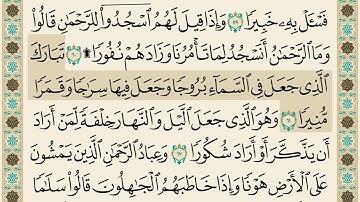 فَسْـَٔلْ بِهِۦ خَبِيرًا ۝٥٩ وَإِذَا قِيلَ لَهُمُ ٱسْجُدُوا۟ لِلرَّحْمَٰنِ قَالُوا۟
وَمَا ٱلرَّحْمَٰنُ أَنَسْجُدُ لِمَا تَأْمُرُنَا وَزَادَهُمْ نُفُورًا ۩ ۝٦٠ تَبَارَكَ
ٱلَّذِى جَعَلَ فِى ٱلسَّمَآءِ بُرُوجًا وَجَعَلَ فِيهَا سِرَٰجًا وَقَمَرًا
مُّنِيرًا ۝٦١ وَهُوَ ٱلَّذِى جَعَلَ ٱلَّيْلَ وَٱلنَّهَارَ خِلْفَةً لِّمَنْ أَرَادَ
أَن يَذَّكَّرَ أَوْ أَرَادَ شُكُورًا ۝٦٢ وَعِبَادُ ٱلرَّحْمَٰنِ ٱلَّذِينَ يَمْشُونَ
عَلَى ٱلْأَرْضِ هَوْنًا وَإِذَا خَاطَبَهُمُ ٱلْجَٰهِلُونَ قَالُوا۟ سَلَٰمًا